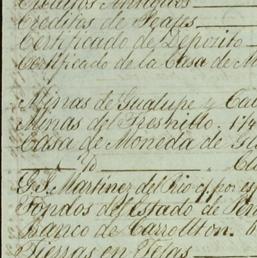 Creditos Antiguos
Creditos de
Certificado de Deposito
Certificado de la Casa de M
Minas de Gualupe y
Minas del Fresnillo. 1/4
Casa de Moneda de
G.S. Martinez del Rio
Fondos del Estado de
Banco de Carrollton.
Tierras en Tejas